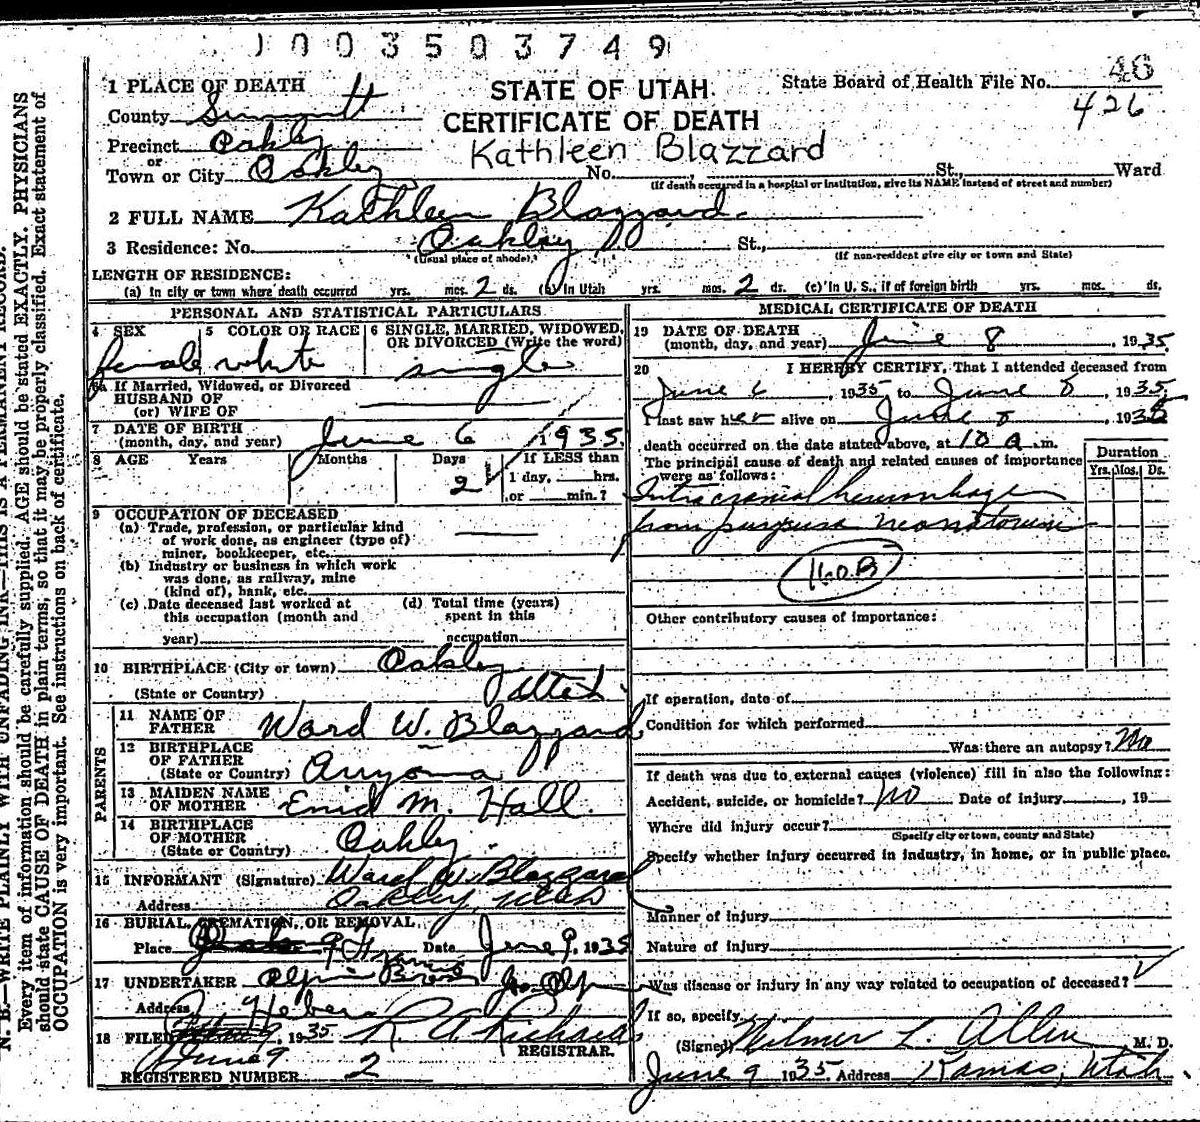 1003503749
1 PLACE OF DEATH
STATE OF UTAH
State Board of Health File No. 46
426
County Summitt
CERTIFICATE OF DEATH
Precinct Oakley
Kathleen Blazzard
or
Town or City Oakley No. St., Ward
(If death occured in a hospital or institution, give its NAME instead of street and number)
2 FULL NAME Kathleen Blazzard.
3 Residence: No. Oakley St.,
(Usual place of abode)
(If non-resident give city or town and State)
LENGTH OF RESIDENCE:
(a) In city or town where death occurred yrs. mos. 2 ds. (b) In Utah yrs. mos. 2 ds. (c) In U. S., if of foreign birth yrs. mos. ds.
PERSONAL AND STATISTICAL PARTICULARS
4 SEX female
5 COLOR OR RACE white
6 SINGLE, MARRIED, WIDOWED, OR DIVORCED (Write the word) single
6a If Married, Widowed, or Divorced
HUSBAND OF
(or) WIFE OF
7 DATE OF BIRTH
(month, day, and year) June 6 1935
8 AGE Years Months Days 2 If LESS than
1 day, hrs.
or min.?
9 OCCUPATION OF DECEASED
(a) Trade, profession, or particular kind
of work done, as engineer (type of)
miner, bookkeeper, etc.
(b) Industry or business in which work
was done, as railway, mine
(kind of), bank, etc.
(c) Date deceased last worked at
this occupation (month and
year)
(d) Total time (years)
spent in this
occupation
10 BIRTHPLACE (City or town) Oakley
(State or Country) Utah
PARENTS
11 NAME OF
FATHER Ward W. Blazzard
12 BIRTHPLACE
OF FATHER
(State or Country) Aryona
13 MAIDEN NAME
OF MOTHER Enid M. Hall.
14 BIRTHPLACE
OF MOTHER
(State or Country) Oakley.
15 INFORMANT (Signature) Ward W. Blazzard
Address Oakley, Utah
16 BURIAL, CREMATION, OR REMOVAL
Place Date June 9, 1935
17 UNDERTAKER Olpin Bros
Address Heber
18 FILED 1935 R. A. Richards
June 9
REGISTRAR.
REGISTERED NUMBER 2
MEDICAL CERTIFICATE OF DEATH
19 DATE OF DEATH
(month, day, and year) June 8, 1935
20 I HEREBY CERTIFY, That I attended deceased from
June 6, 1935, to June 8, 1935.
I last saw her alive on June 8, 1935
death occurred on the date stated above, at 10 a. m.
The principal cause of death and related causes of importance
were as follows:
Duration
Yrs. Mos. Ds.
Intracranial hemorrhage
from purpura neonatorum
160B
Other contributory causes of importance:
If operation, date of
Condition for which performed
Was there an autopsy? No
If death was due to external causes (violence) fill in also the following:
Accident, suicide, or homicide? no Date of injury, 19
Where did injury occur?
(Specify city or town, county and State)
Specify whether injury occurred in industry, in home, or in public place.
Manner of injury
Nature of injury
Was disease or injury in any way related to occupation of deceased?
If so, specify
(Signed) Wilmer L. Allen M. D.
June 9 1935 Address Kamas, Utah
N. B.—WRITE PLAINLY WITH UNFADING INK—THIS IS A PERMANENT RECORD.
Every item of information should be carefully supplied. AGE should be stated EXACTLY. PHYSICIANS
should state CAUSE OF DEATH in plain terms, so that it may be properly classified. Exact statement of
OCCUPATION is very important. See instructions on back of certificate.